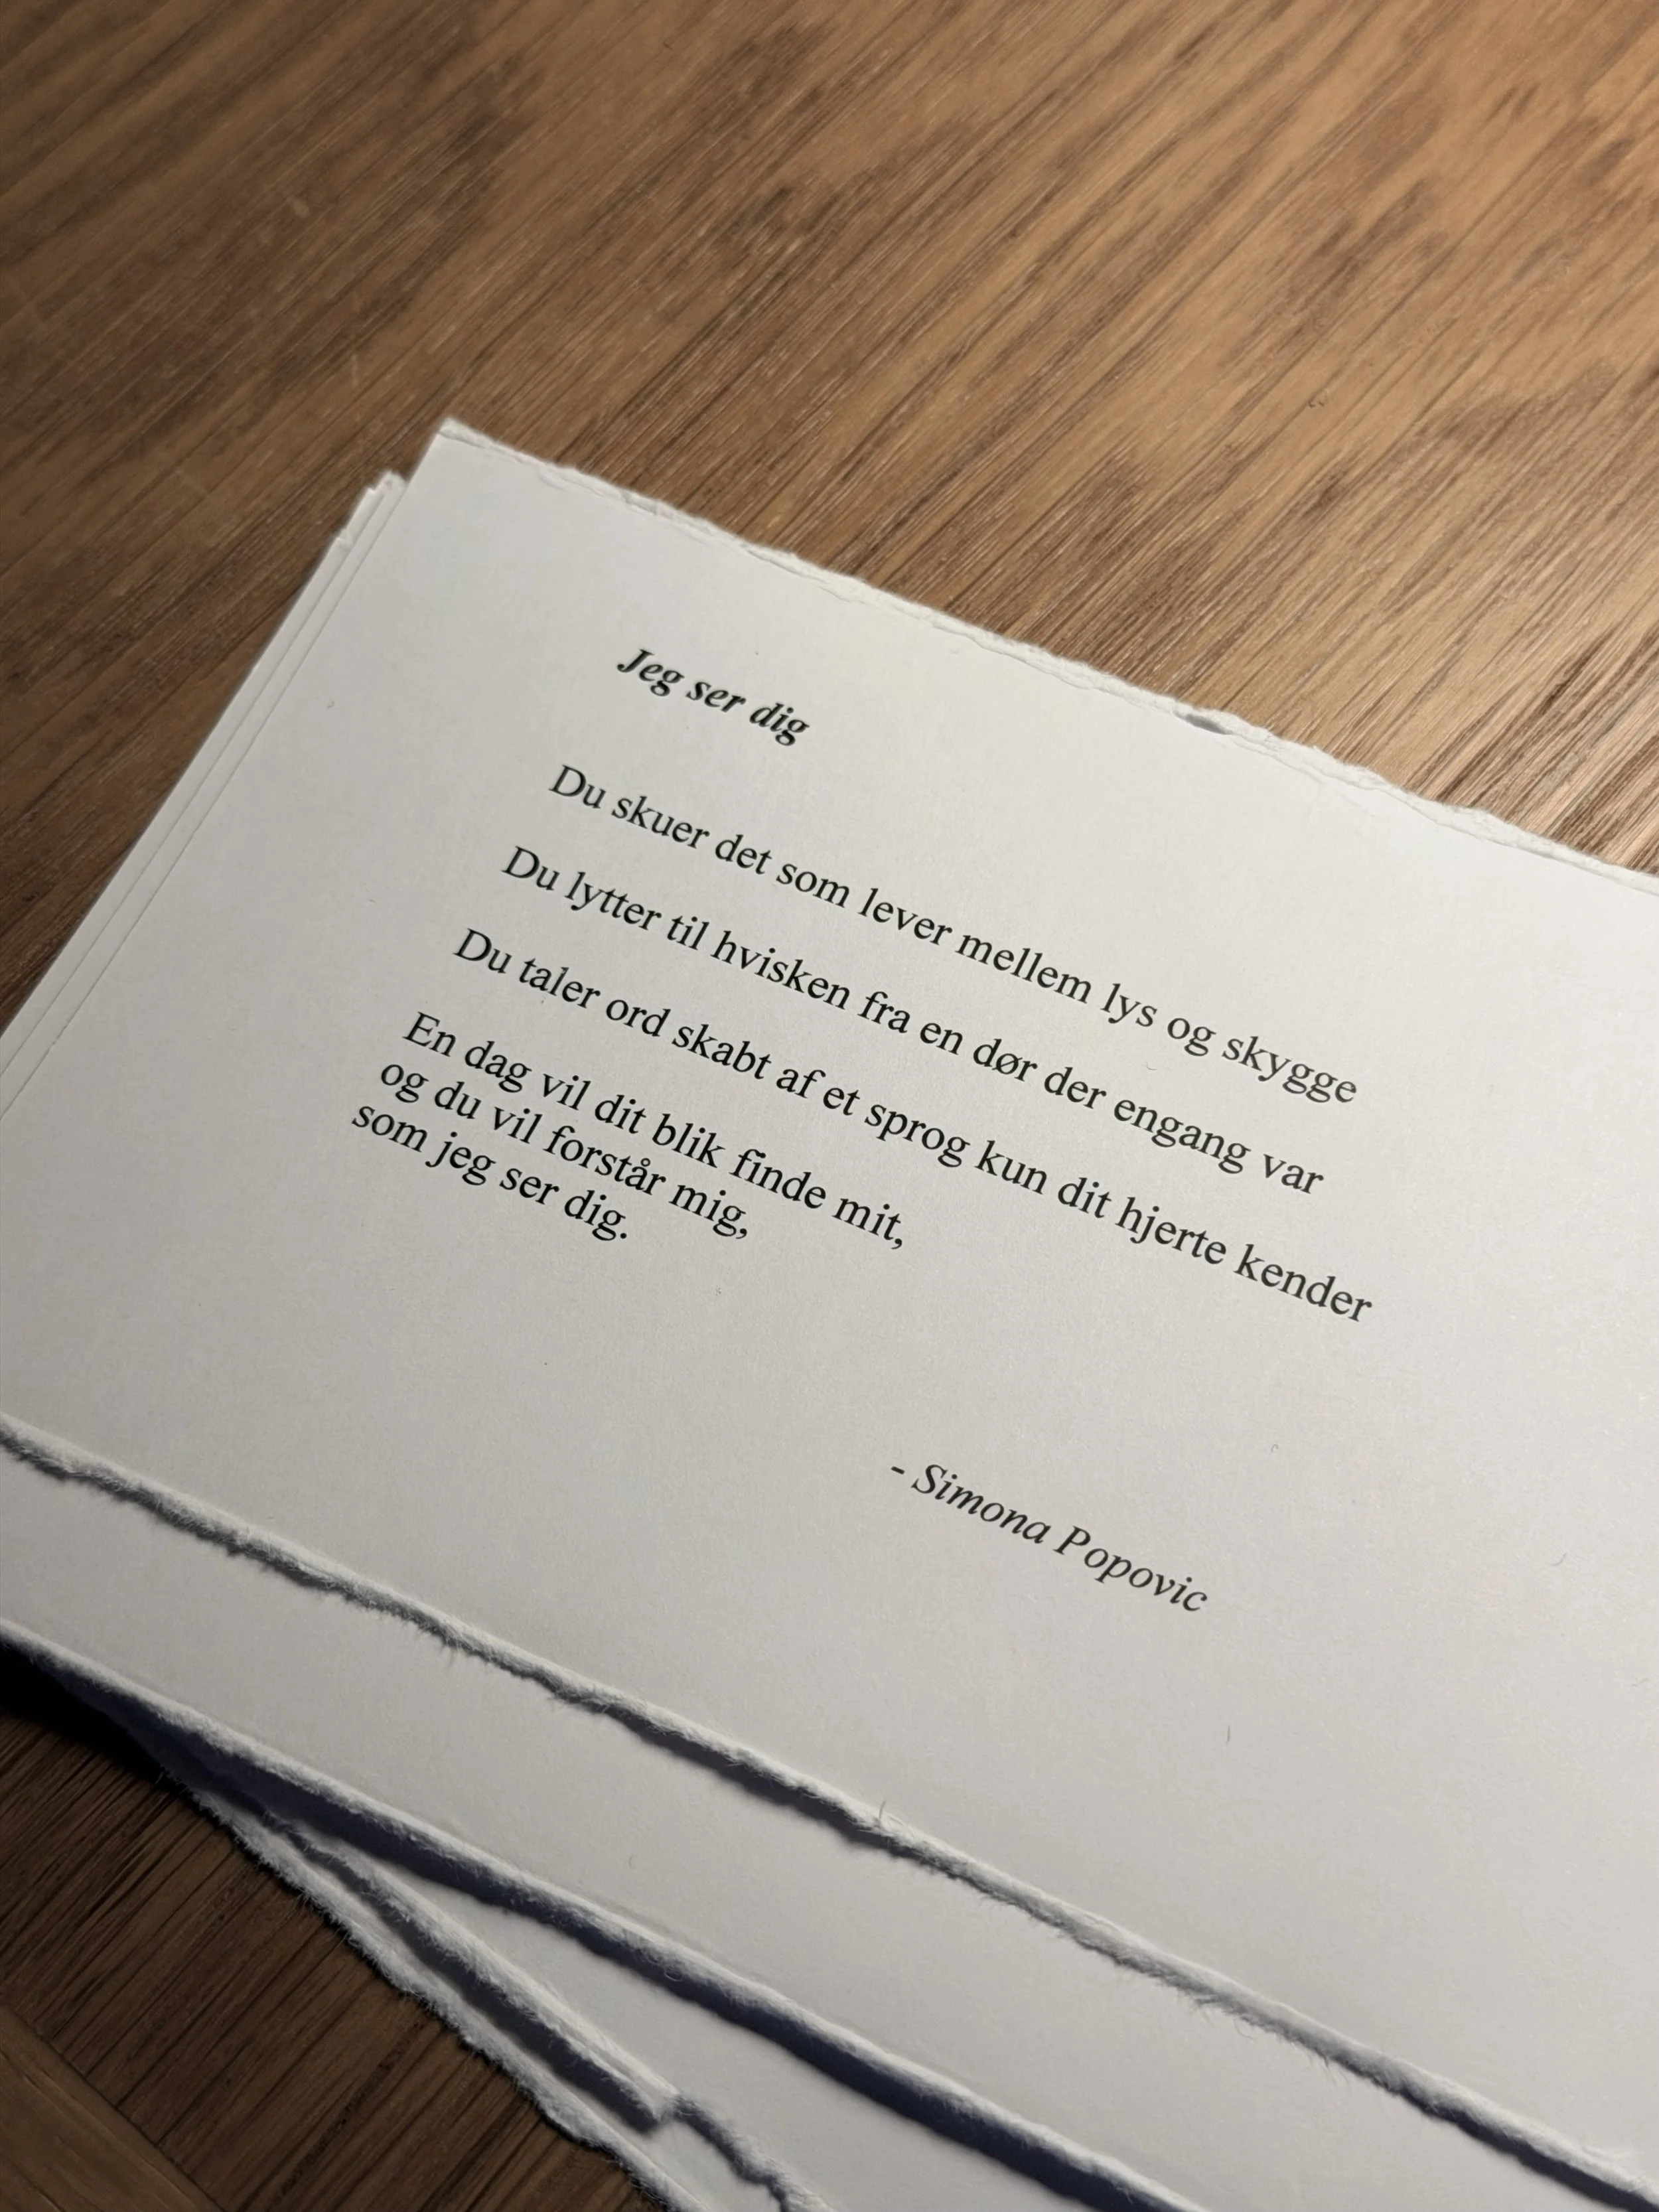 Jeg ser dig
Du skuer det som lever mellem lys og skygge
Du lytter til hvisken fra en dør der engang var
Du taler ord skabt af et sprog kun dit hjerte kender
En dag vil dit blik finde mit,
og du vil forstår mig,
som jeg ser dig.
- Simona Popovic